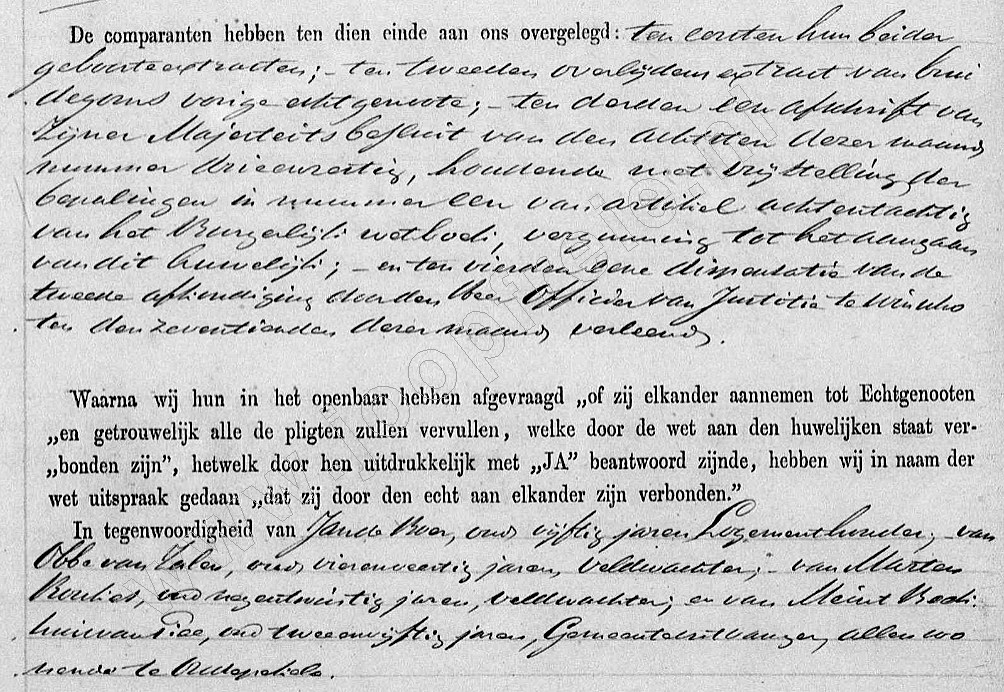 De comparanten hebben ten dien einde aan ons overgelegd: ten eersten hun beider
geboorteextracten; - ten tweeden overlijdens extract van brui
degoms vorige echtgenoote; - ten derden een afschrift van
Zijner Majesteits besluit van den achtsten dezer maand
nummer drieenzestig, houdende met vrijstelling der
bepalingen in nummer een van artikel achtentachtig
van het Burgerlijk wetboek, vergunning tot het aangaan
van dit huwelijk; - en ten vierden eene dispensatie van de
tweede afkondiging door den Heer Officier van Justitie te Winscho
ten den zeventienden dezer maand verleend.
Waarna wij hun in het openbaar hebben afgevraagd „of zij elkander aannemen tot Echtgenooten
„en getrouwelijk alle de pligten zullen vervullen, welke door de wet aan den huwelijken staat ver-
„bonden zijn”, hetwelk door hen uitdrukkelijk met „JA” beantwoord zijnde, hebben wij in naam der
wet uitspraak gedaan „dat zij door den echt aan elkander zijn verbonden.”
In tegenwoordigheid van Jan de Boer, oud vijftig jaren Logementhouder, - van
Obbe van Zalen, oud vierenveertig jaren, veldwachter; - van Marten
oud negentwintig jaren, veldwachter; en van Meint Boek
huizen van Pide, oud tweeenvijftig jaren, Gemeenteontvanger, allen wo
nende te Oudepekela.